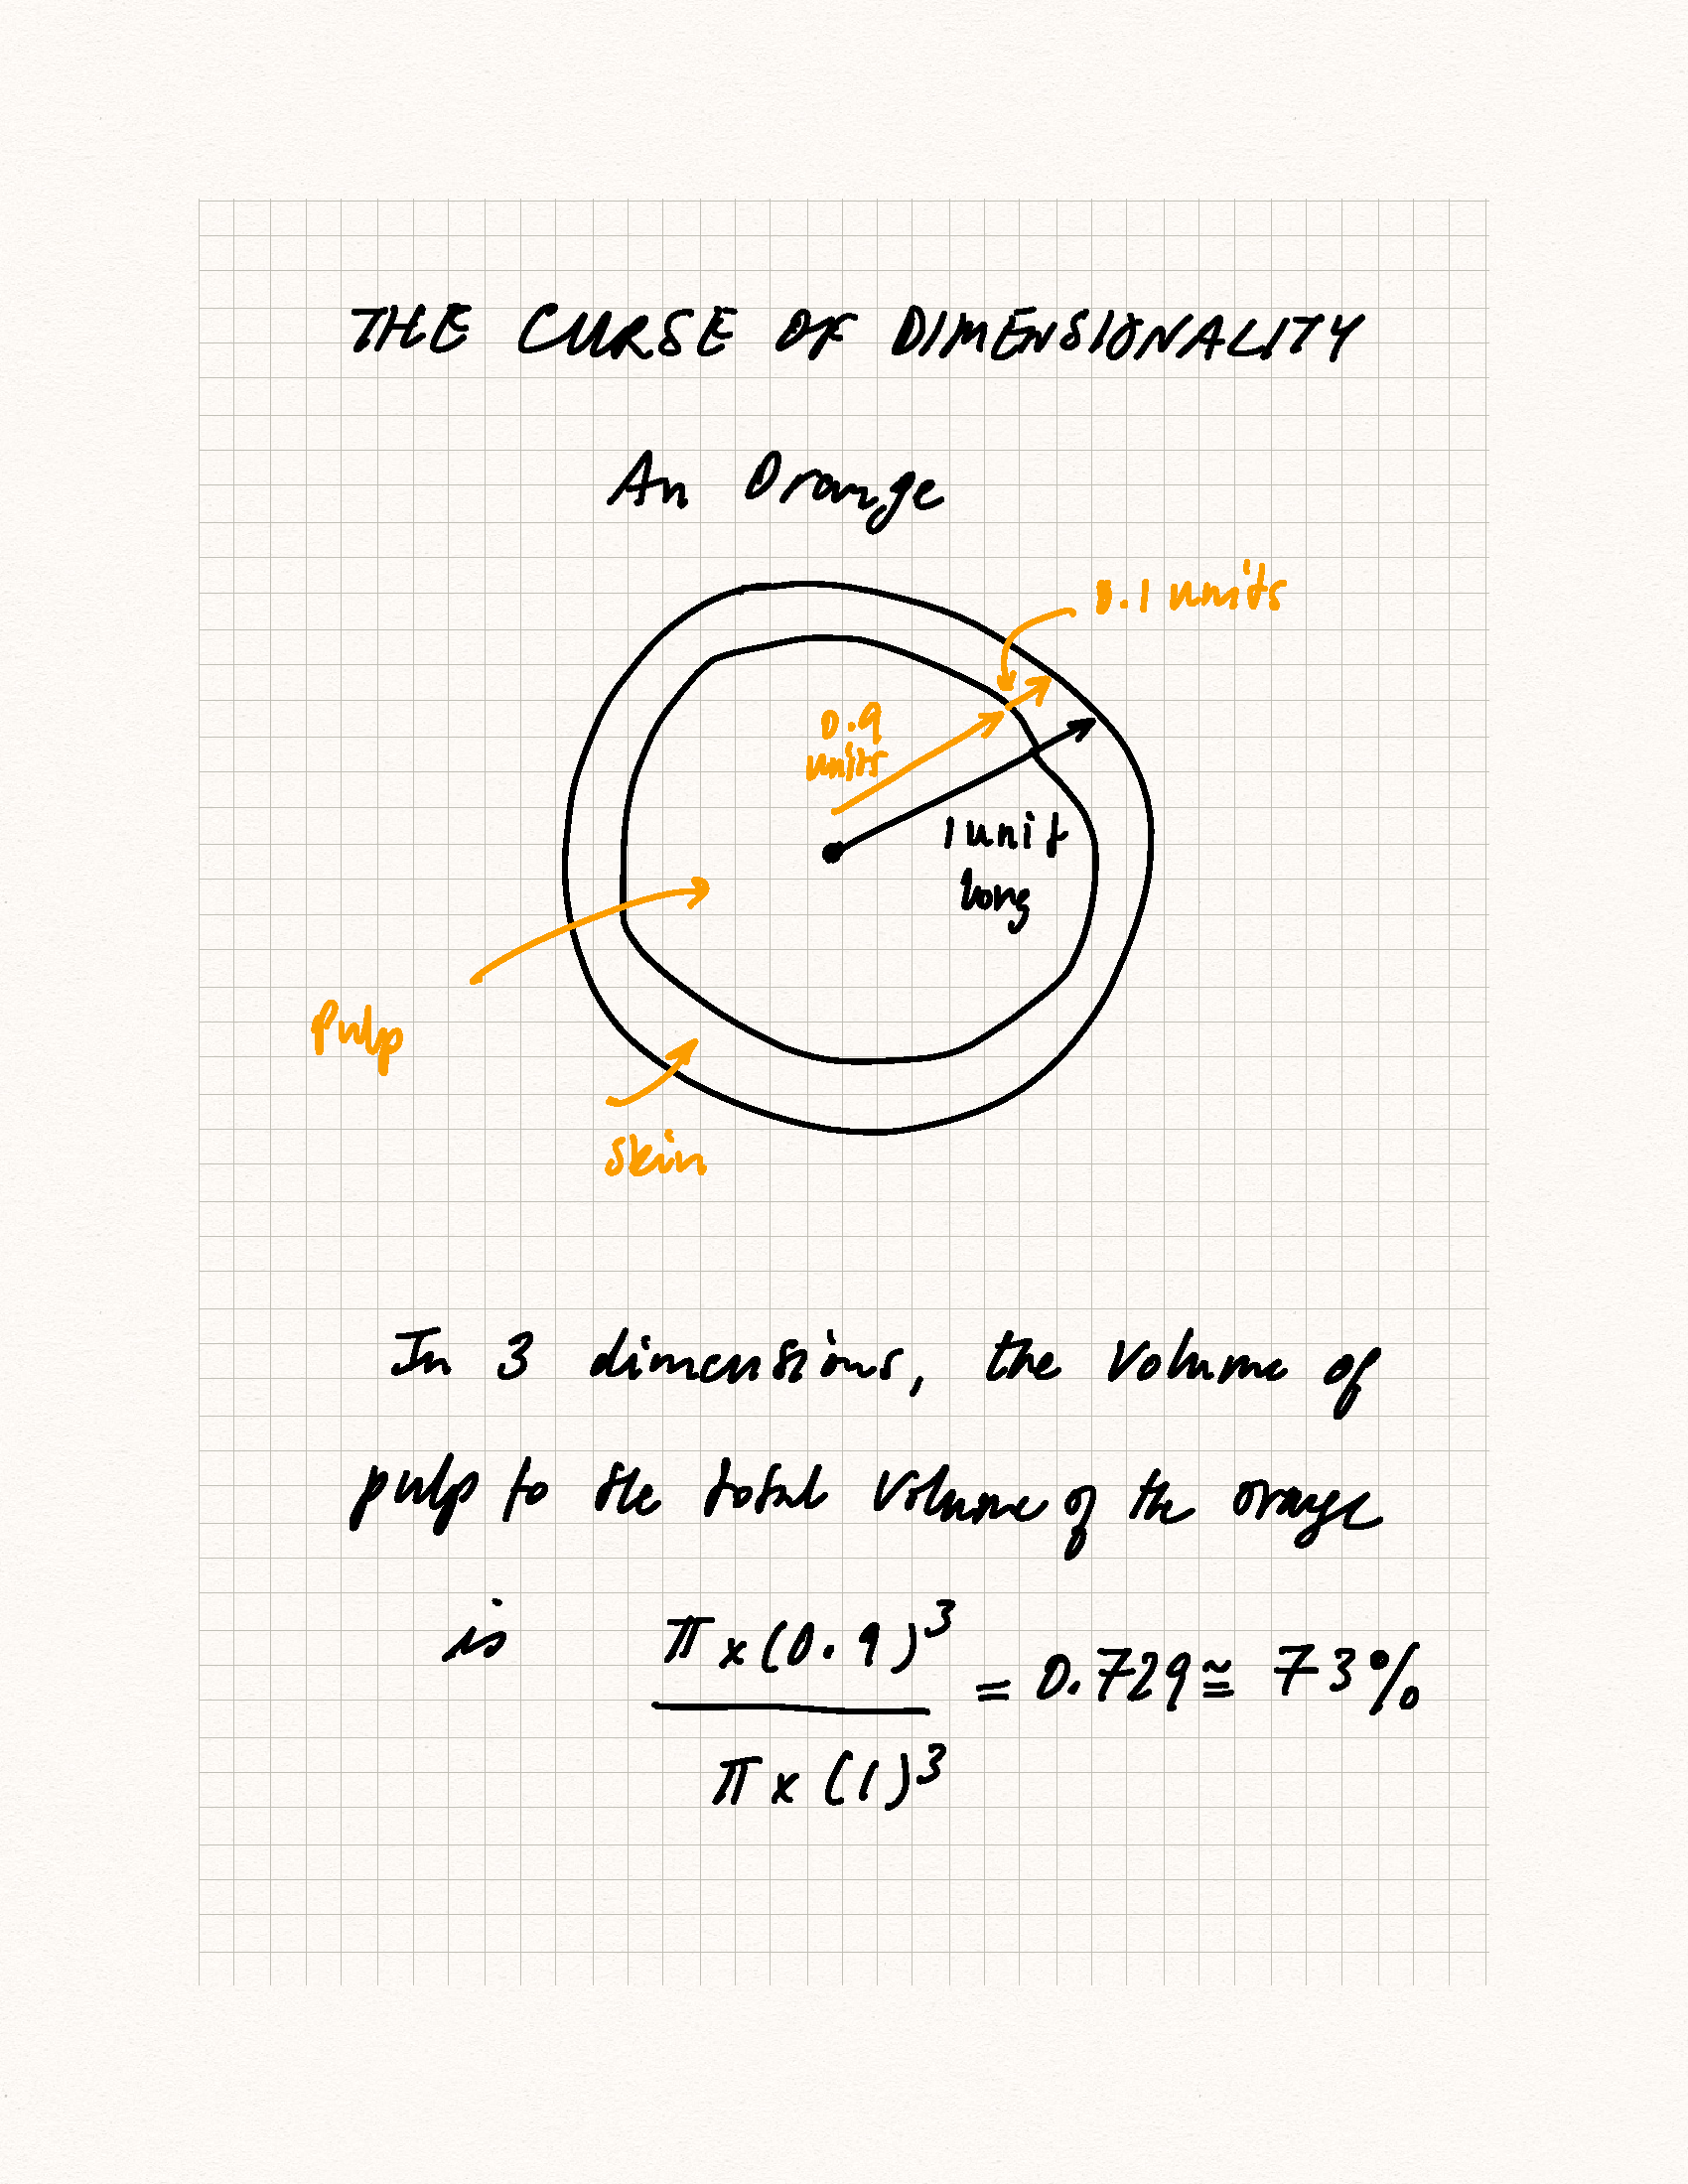 THE CURSE OF DIMENSIONALITY
An Orange
0.1 units
0.9
units
1 unit
long
pulp
skin
In 3 dimensions, the volume of
pulp to the total volume of the orange
is π x (0.9)³ / π x (1)³ = 0.729 ≅ 73%